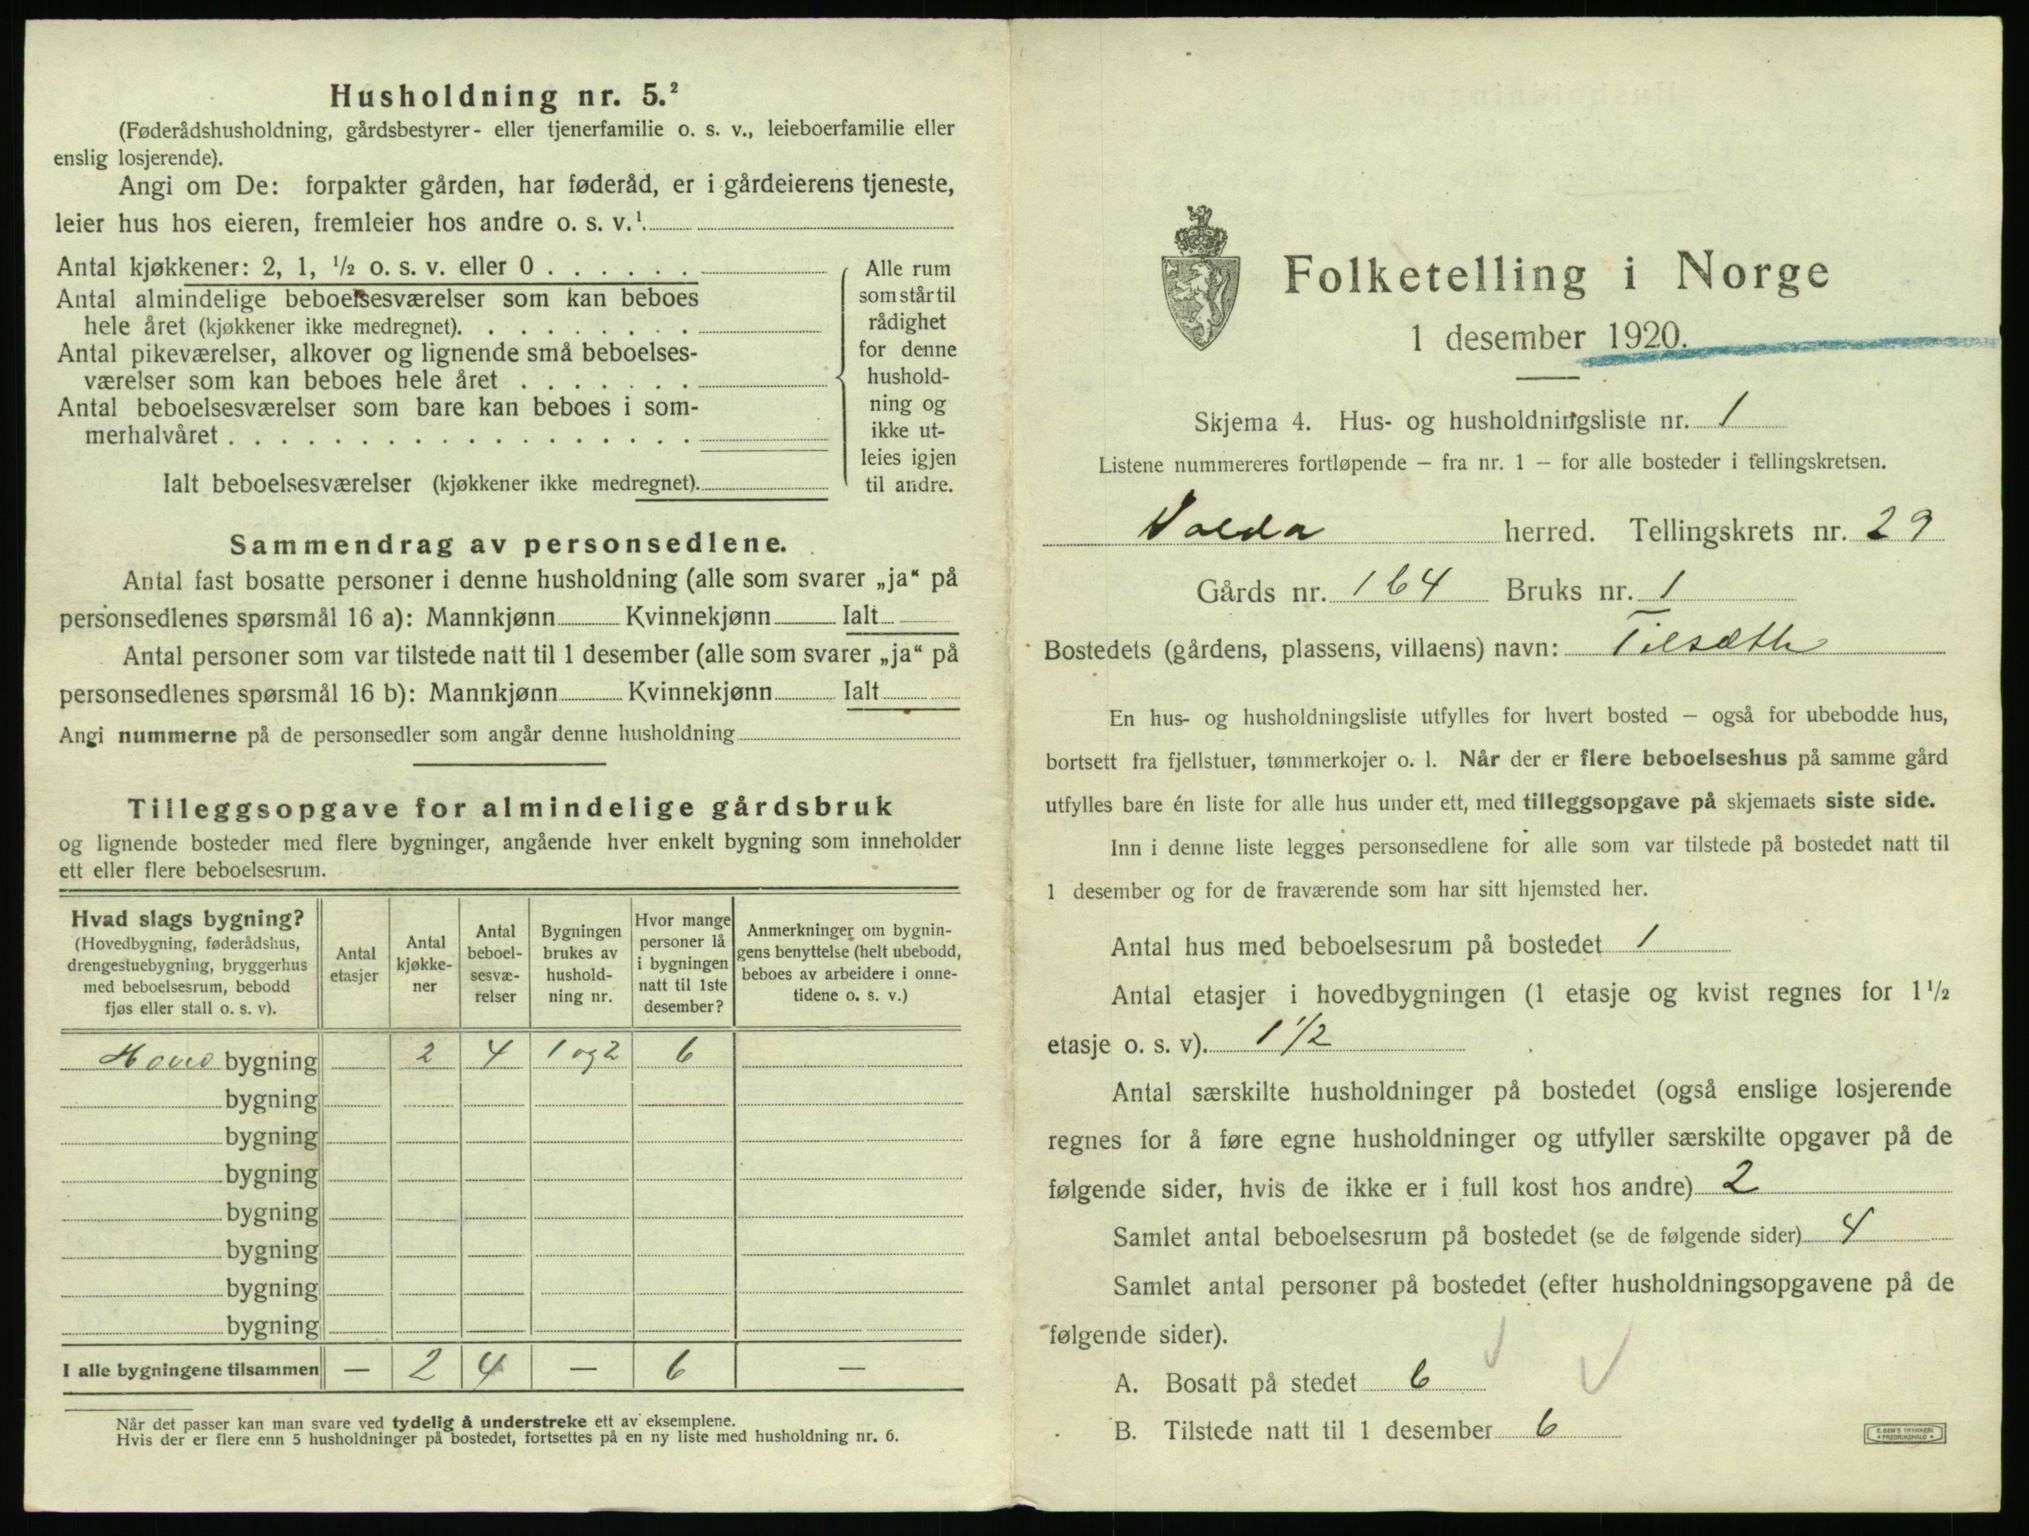 Husholdning nr. 5.²
(Føderådshusholdning, gårdsbestyrer- eller tjenerfamilie o. s. v., leieboerfamilie eller
enslig losjerende).
Angi om De: forpakter gården, har føderåd, er i gårdeierens tjeneste,
leier hus hos eieren, fremleier hos andre o. s. v.¹
Antal kjøkkener: 2, 1, ½ o. s. v. eller 0 . . . . . .
Antal almindelige beboelsesværelser som kan beboes
hele året (kjøkkener ikke medregnet). . . . . . . . .
Antal pikeværelser, alkover og lignende små beboelses-
værelser som kan beboes hele året . . . . . . .
Antal beboelsesværelser som bare kan beboes i som-
merhalvåret . . . . . . . . . . . . . . . . . .
Ialt beboelsesværelser (kjøkkener ikke medregnet).
Alle rum
som står til
rådighet
for denne
hushold-
ning og
ikke ut-
leies igjen
til andre.
Sammendrag av personsedlene.
Antal fast bosatte personer i denne husholdning (alle som svarer „ja“ på
personsedlenes spørsmål 16 a): Mannkjønn Kvinnekjønn Ialt
Antal personer som var tilstede natt til 1 desember (alle som svarer „ja“ på
personsedlenes spørsmål 16 b): Mannkjønn Kvinnekjønn Ialt
Angi nummerne på de personsedler som angår denne husholdning
Tilleggsopgave for almindelige gårdsbruk
og lignende bosteder med flere bygninger, angående hver enkelt bygning som inneholder
ett eller flere beboelsesrum.
Hvad slags bygning?
(Hovedbygning, føderådshus,
drengestuebygning, bryggerhus
med beboelsesrum, bebodd
fjøs eller stall o. s. v).
Antal
etasjer
Antal
kjøkke-
ner
Antal
beboel-
sesvæ-
relser
Bygningen
brukes av
hushold-
ning nr.
Hvor mange
personer lå
i bygningen
natt til 1ste
desember?
Anmerkninger om bygnin-
gens benyttelse (helt ubebodd,
beboes av arbeidere i onne-
tidene o. s. v.)
Hoved bygning 2 4 1 og 2 6
bygning
bygning
bygning
bygning
bygning
bygning
bygning
I alle bygningene tilsammen — 2 4 — 6 —
Når det passer kan man svare ved tydelig å understreke ett av eksemplene.
Hvis der er flere enn 5 husholdninger på bostedet, fortsettes på en ny liste med husholdning nr. 6.
Folketelling i Norge
1 desember 1920.
Skjema 4. Hus- og husholdningsliste nr. 1
Listene nummereres fortløpende – fra nr. 1 – for alle bosteder i tellingskretsen.
Volda herred. Tellingskrets nr. 29
Gårds nr. 164 Bruks nr. 1
Bostedets (gårdens, plassens, villaens) navn: Tilsæth
En hus- og husholdningsliste utfylles for hvert bosted – også for ubebodde hus,
bortsett fra fjellstuer, tømmerkojer o. l. Når der er flere beboelseshus på samme gård
utfylles bare én liste for alle hus under ett, med tilleggsopgave på skjemaets siste side.
Inn i denne liste legges personsedlene for alle som var tilstede på bostedet natt til
1 desember og for de fraværende som har sitt hjemsted her.
Antal hus med beboelsesrum på bostedet 1
Antal etasjer i hovedbygningen (1 etasje og kvist regnes for 1½
etasje o. s. v). 1 1/2
Antal særskilte husholdninger på bostedet (også enslige losjerende
regnes for å føre egne husholdninger og utfyller særskilte opgaver på de
følgende sider, hvis de ikke er i full kost hos andre) 2
Samlet antal beboelsesrum på bostedet (se de følgende sider) 4
Samlet antal personer på bostedet (efter husholdningsopgavene på de
følgende sider).
A. Bosatt på stedet 6
B. Tilstede natt til 1 desember 6
E. SEM'S TRYKKERI
FREDRIKSHALD